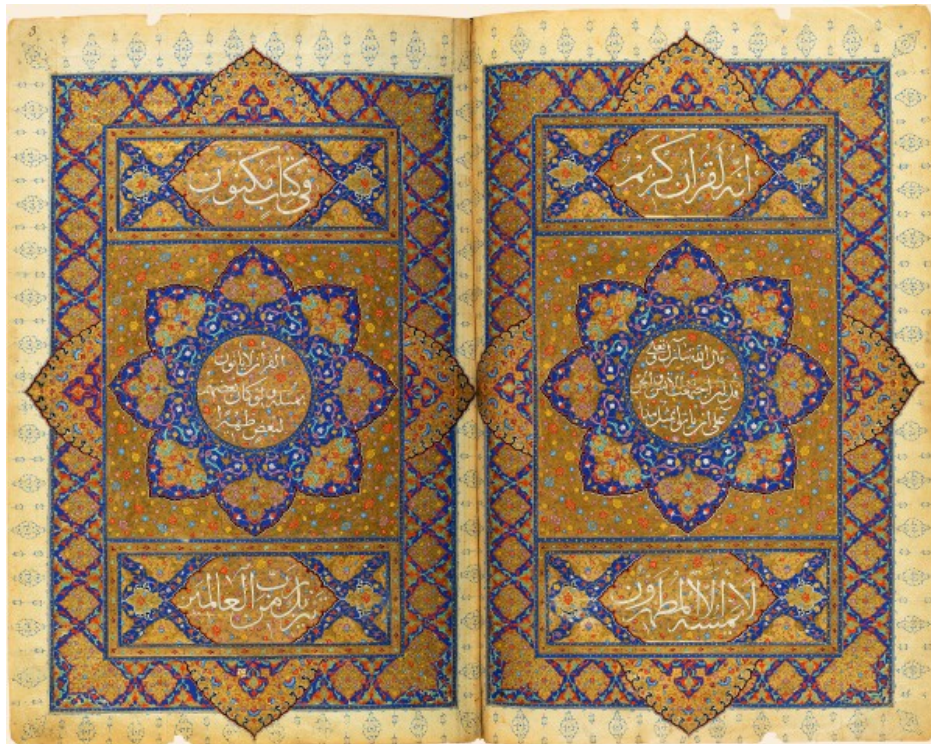 انه لقرآن كريم
قال الله تبارك وتعالى
قل لئن اجتمعت الانس والجن
على ان ياتوا بمثل هذا
لا يمسه الا المطهرون
في كتاب مكنون
القرآن لا ياتون
بمثله ولو كان بعضهم
لبعض ظهيرا
تنزيل من رب العالمين